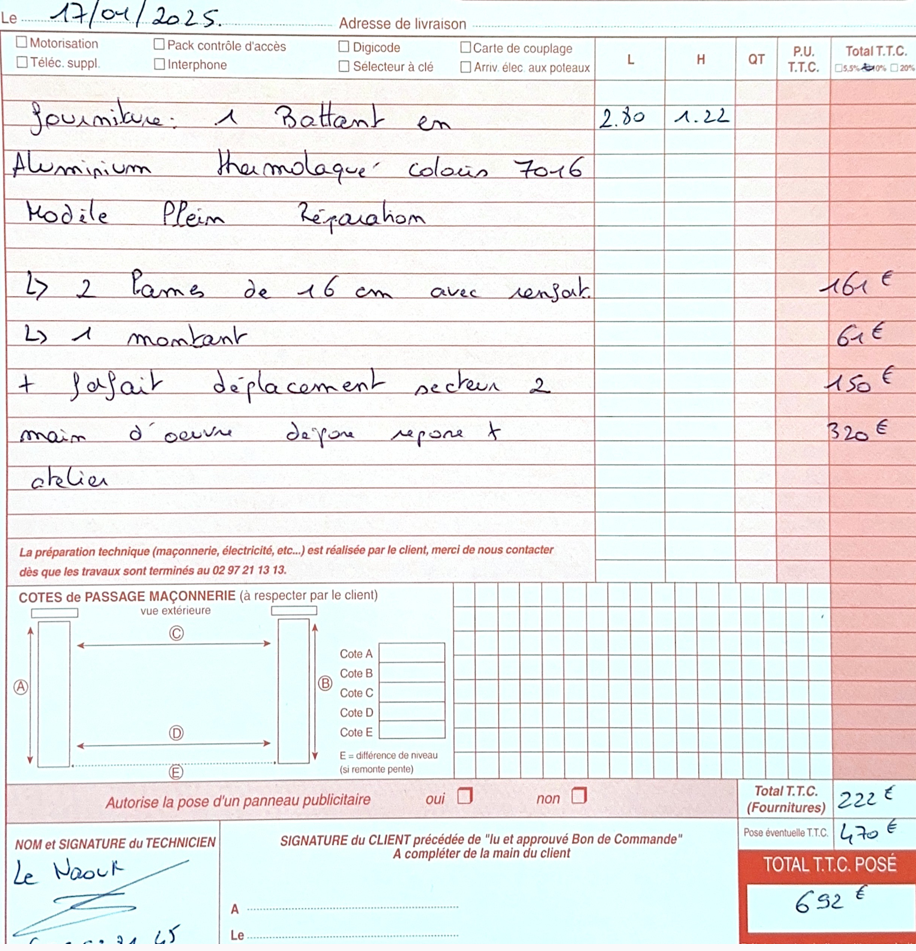 Le 17/01/2025.
Adresse de livraison
Motorisation Pack contrôle d'accès Digicode Carte de couplage
Téléc. suppl. Interphone Sélecteur à clé Arriv. élec. aux poteaux
L H QT P.U. T.T.C. Total T.T.C.
5.5% 10% 20%
fourniture: 1 Battant en 2.80 1.22
Aluminium thermolaqué coloris 7016
Modèle Plein Réparation
↳ 2 lames de 16 cm avec renfort. 161 €
↳ 1 montant 61 €
+ forfait déplacement secteur 2 150 €
main d'oeuvre depose repose + 320 €
atelier
La préparation technique (maçonnerie, électricité, etc...) est réalisée par le client, merci de nous contacter
dès que les travaux sont terminés au 02 97 21 13 13.
COTES de PASSAGE MAÇONNERIE (à respecter par le client)
vue extérieure
C
A
B
D
E
Cote A
Cote B
Cote C
Cote D
Cote E
E = différence de niveau
(si remonte pente)
Autorise la pose d'un panneau publicitaire oui non
Total T.T.C. (Fournitures) 222 €
Pose éventuelle T.T.C. 470 €
TOTAL T.T.C. POSÉ
692 €
NOM et SIGNATURE du TECHNICIEN
Le Naour
SIGNATURE du CLIENT précédée de "lu et approuvé Bon de Commande"
A compléter de la main du client
A
Le